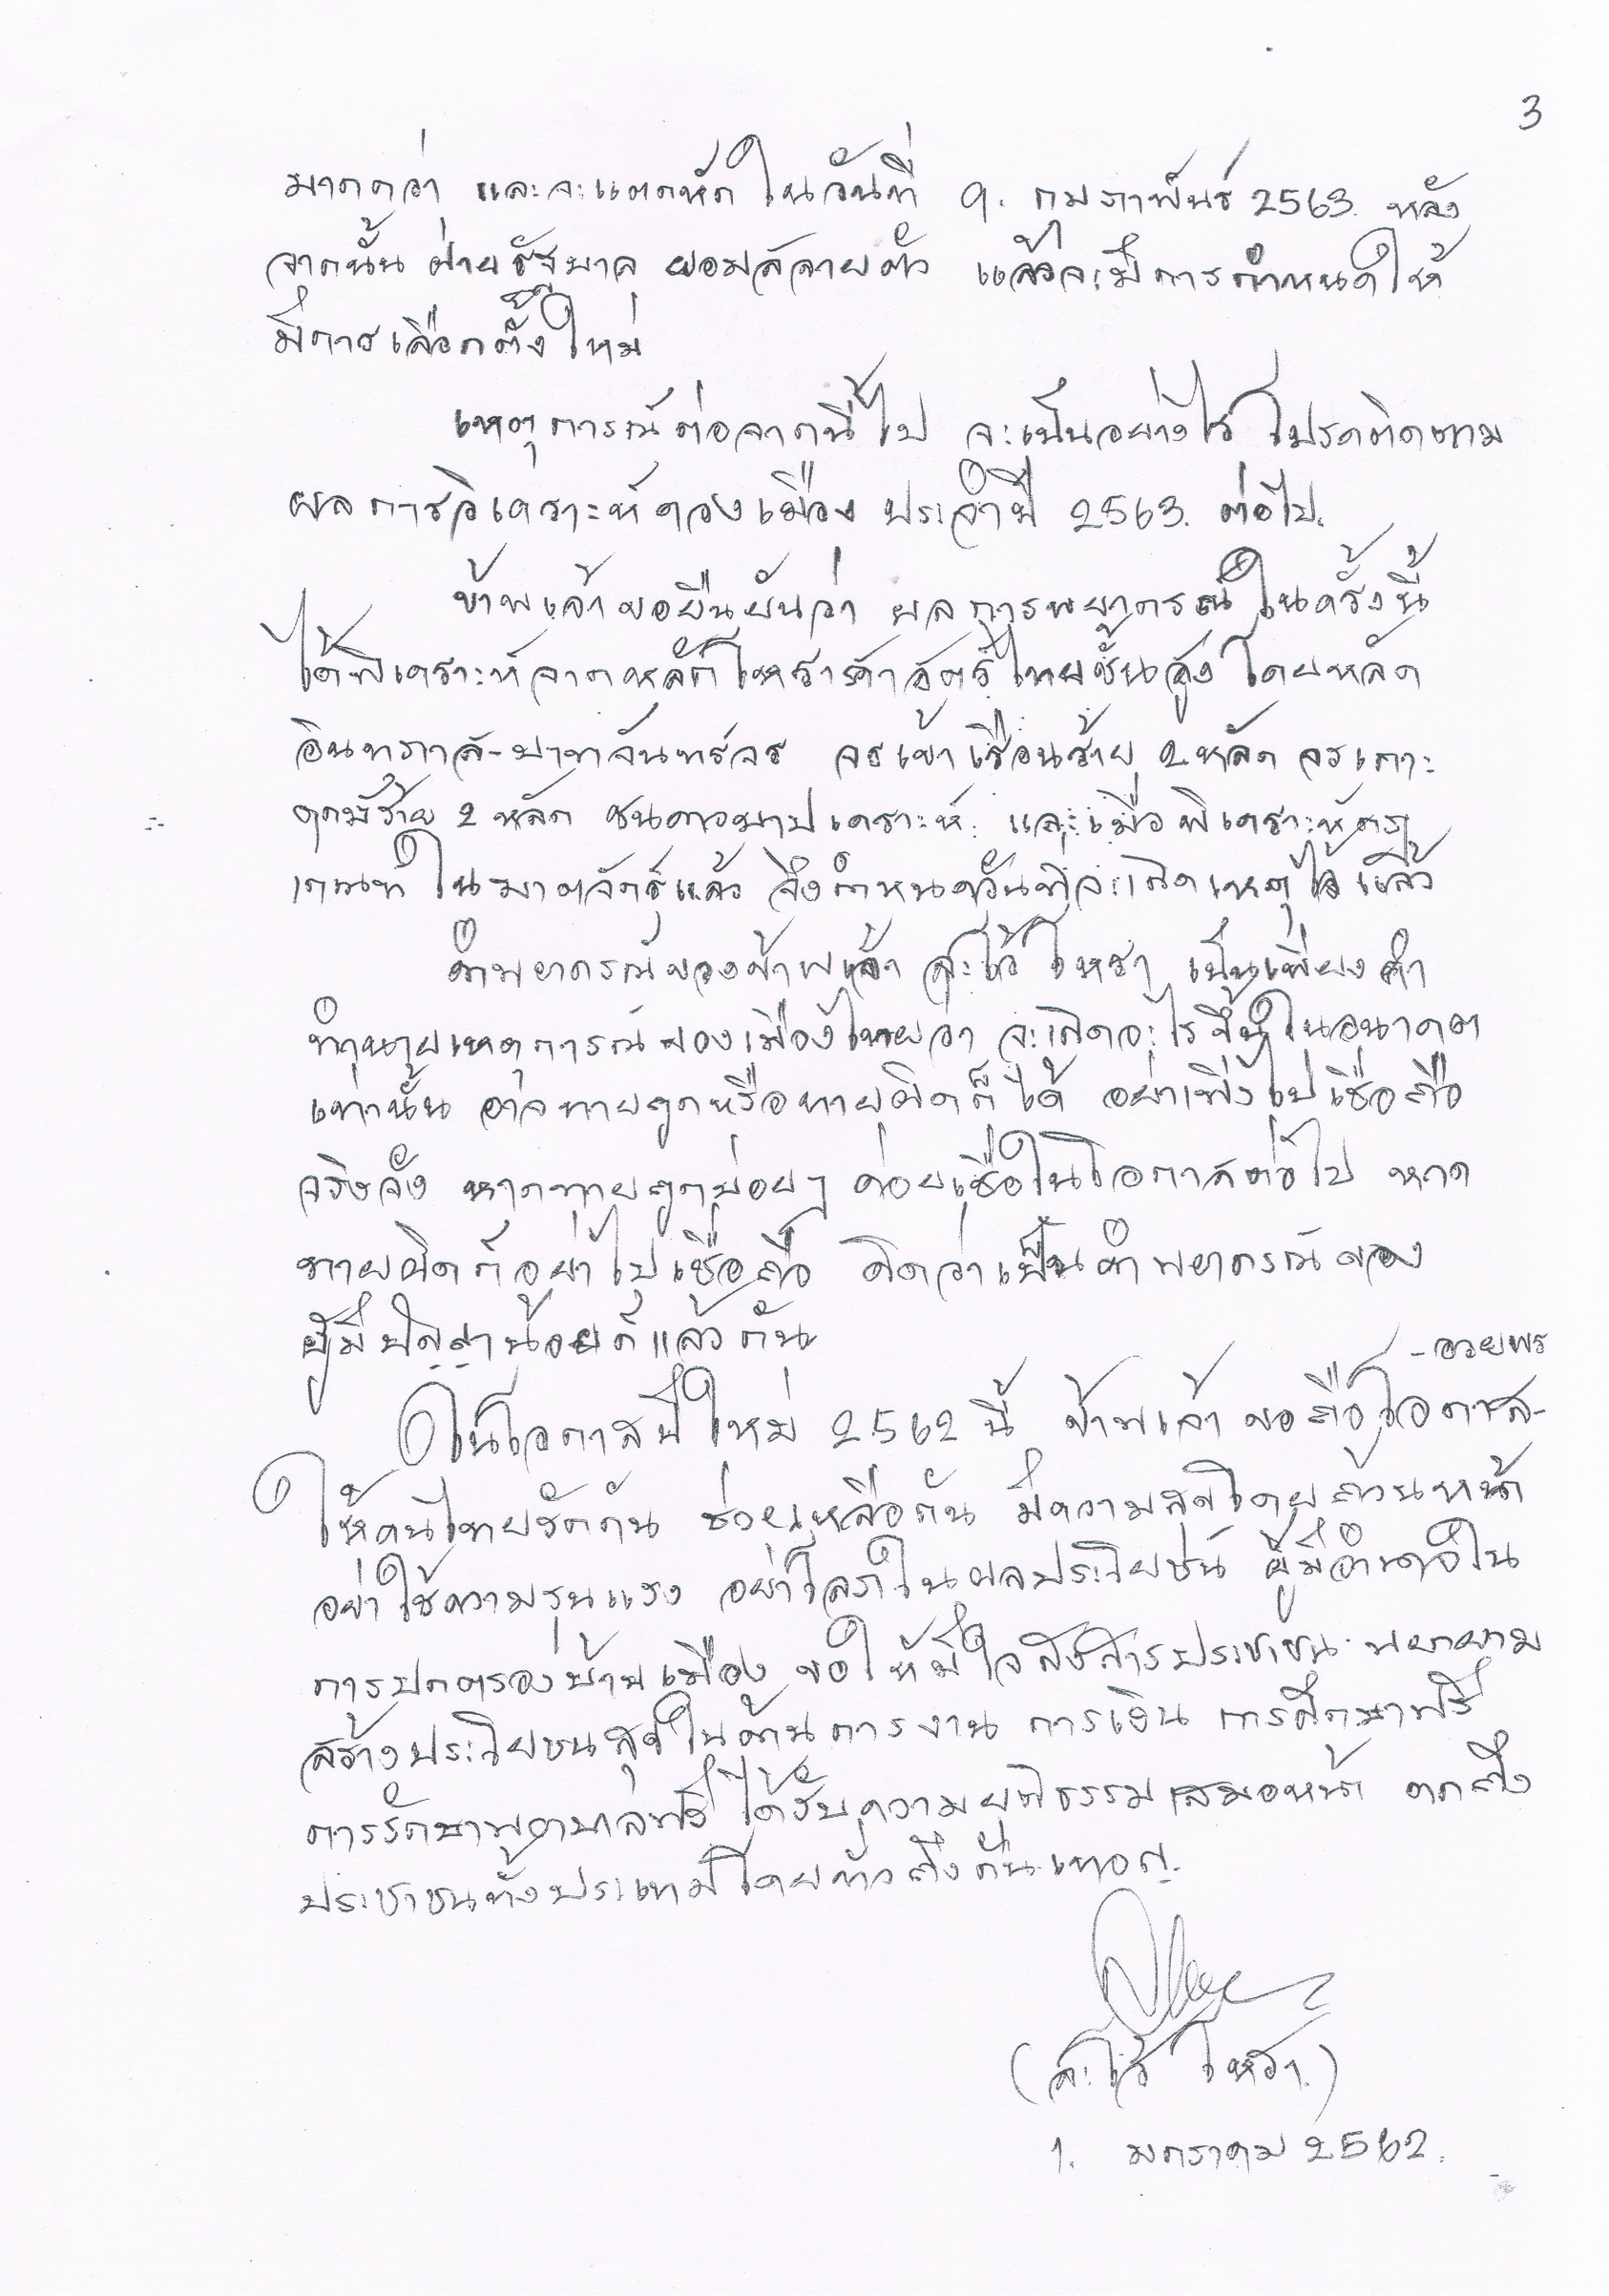 3
มากกว่า และจะแตกหัก ในวันที่ 9. กุมภาพันธ์ 2563. หลัง
จากนั้น ฝ่ายรัฐบาล ยอมสลายตัว แล้วจะมีการกำหนดให้
มีการเลือกตั้งใหม่
เหตุการณ์ต่อจากนี้ไป จะเป็นอย่างไร โปรดติดตาม
ผลการวิเคราะห์ดวงเมือง ประจำปี 2563. ต่อไป.
ข้าพเจ้าขอยืนยันว่า ผลการพยากรณ์ในครั้งนี้
ได้พิเคราะห์จากหลักโหราศาสตร์ไทยชั้นสูง โดยหลัก
อินทภาส-บาทจันทร์จร จรเข้าเรือนร้าย 2 หลัก จรเกาะ
ร้าย 2 หลัก ชนดาวบาปเคราะห์. และเมื่อพิเคราะห์
เกณฑ์ ใน แล้ว จึงกำหนดวันที่จะเกิดเหตุไว้แล้ว
คำพยากรณ์ของข้าพเจ้า โหรา เป็นเพียงคำ
ทำนายเหตุการณ์ของเมืองไทยว่า จะเกิดอะไรขึ้นในอนาคต
เท่านั้น อาจทายถูกหรือทายผิดก็ได้ อย่าเพิ่งไปเชื่อถือ
จริงจัง หากทายถูกบ่อยๆ ค่อยเชื่อในโอกาสต่อไป หาก
ทายผิดก็อย่าไปเชื่อถือ คิดว่าเป็นคำพยากรณ์ของ
ผู้มีปัญญาน้อยก็แล้วกัน
-อวยพร
ในโอกาสปีใหม่ 2562 นี้ ข้าพเจ้า ขอถือโอกาส-
ให้คนไทยรักกัน ช่วยเหลือกัน มีความสุขโดยถ้วนหน้า
อย่าใช้ความรุนแรง อย่าโลภในผลประโยชน์ ผู้มีอำนาจใน
การปกครองบ้านเมือง ขอให้มีใจสงสารประชาชน พยายาม
สร้างประโยชน์สุขในด้านการงาน การเงิน การศึกษาฟรี
การรักษาพยาบาลฟรี ได้รับความยุติธรรมเสมอหน้า ตกถึง
ประชาชนทั้งประเทศโดยทั่วถึงกันเทอญ.
( โหรา.)
1. มกราคม 2562.